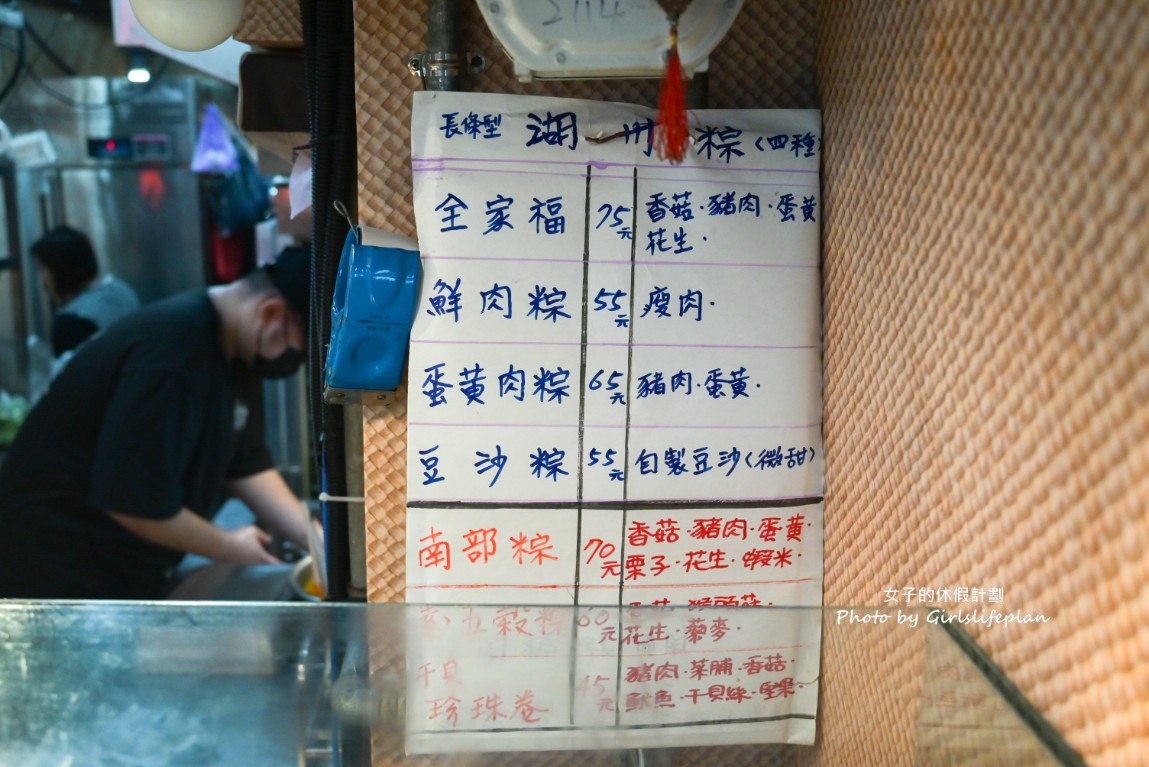 2114
長條型 湖州粽(四種)
全家福 75元 香菇·豬肉·蛋黃
花生·
鮮肉粽 55元 瘦肉·
蛋黃肉粽 65元 豬肉·蛋黃·
豆沙粽 55元 自製豆沙(微甜)
南部粽 70元 香菇·豬肉·蛋黃·
栗子·花生·蝦米·
五穀粽 60元 猴頭菇·
花生·藜麥·
干貝
珍珠卷 45元 豬肉·菜脯·香菇·
魷魚·干貝絲·堅果·
女子的休假計劃
Photo by Girlslifeplan